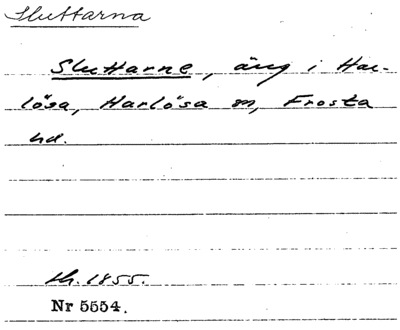 Sluttarna
Sluttarne, äng i Har-
lösa, Harlösa sn, Frosta
hd.
lh. 1855.
Nr 5554.